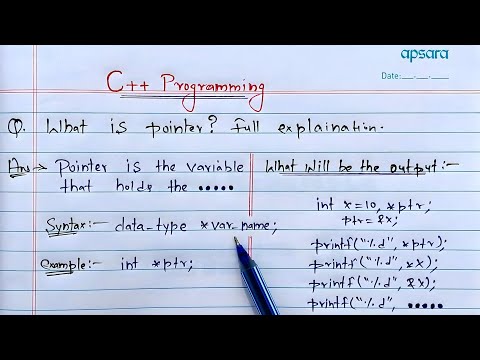 apsara
Date:
C++ Programming
Q. What is pointer? full explaination.
Ans → Pointer is the variable
that holds the .....
Syntax:- data-type *var-name;
Example:- int *ptr;
What will be the output:-
int x=10, *ptr;
ptr = &x;
printf("%d", *ptr);
printf("%d", *x);
printf("%d", &x);
printf("%d", .....